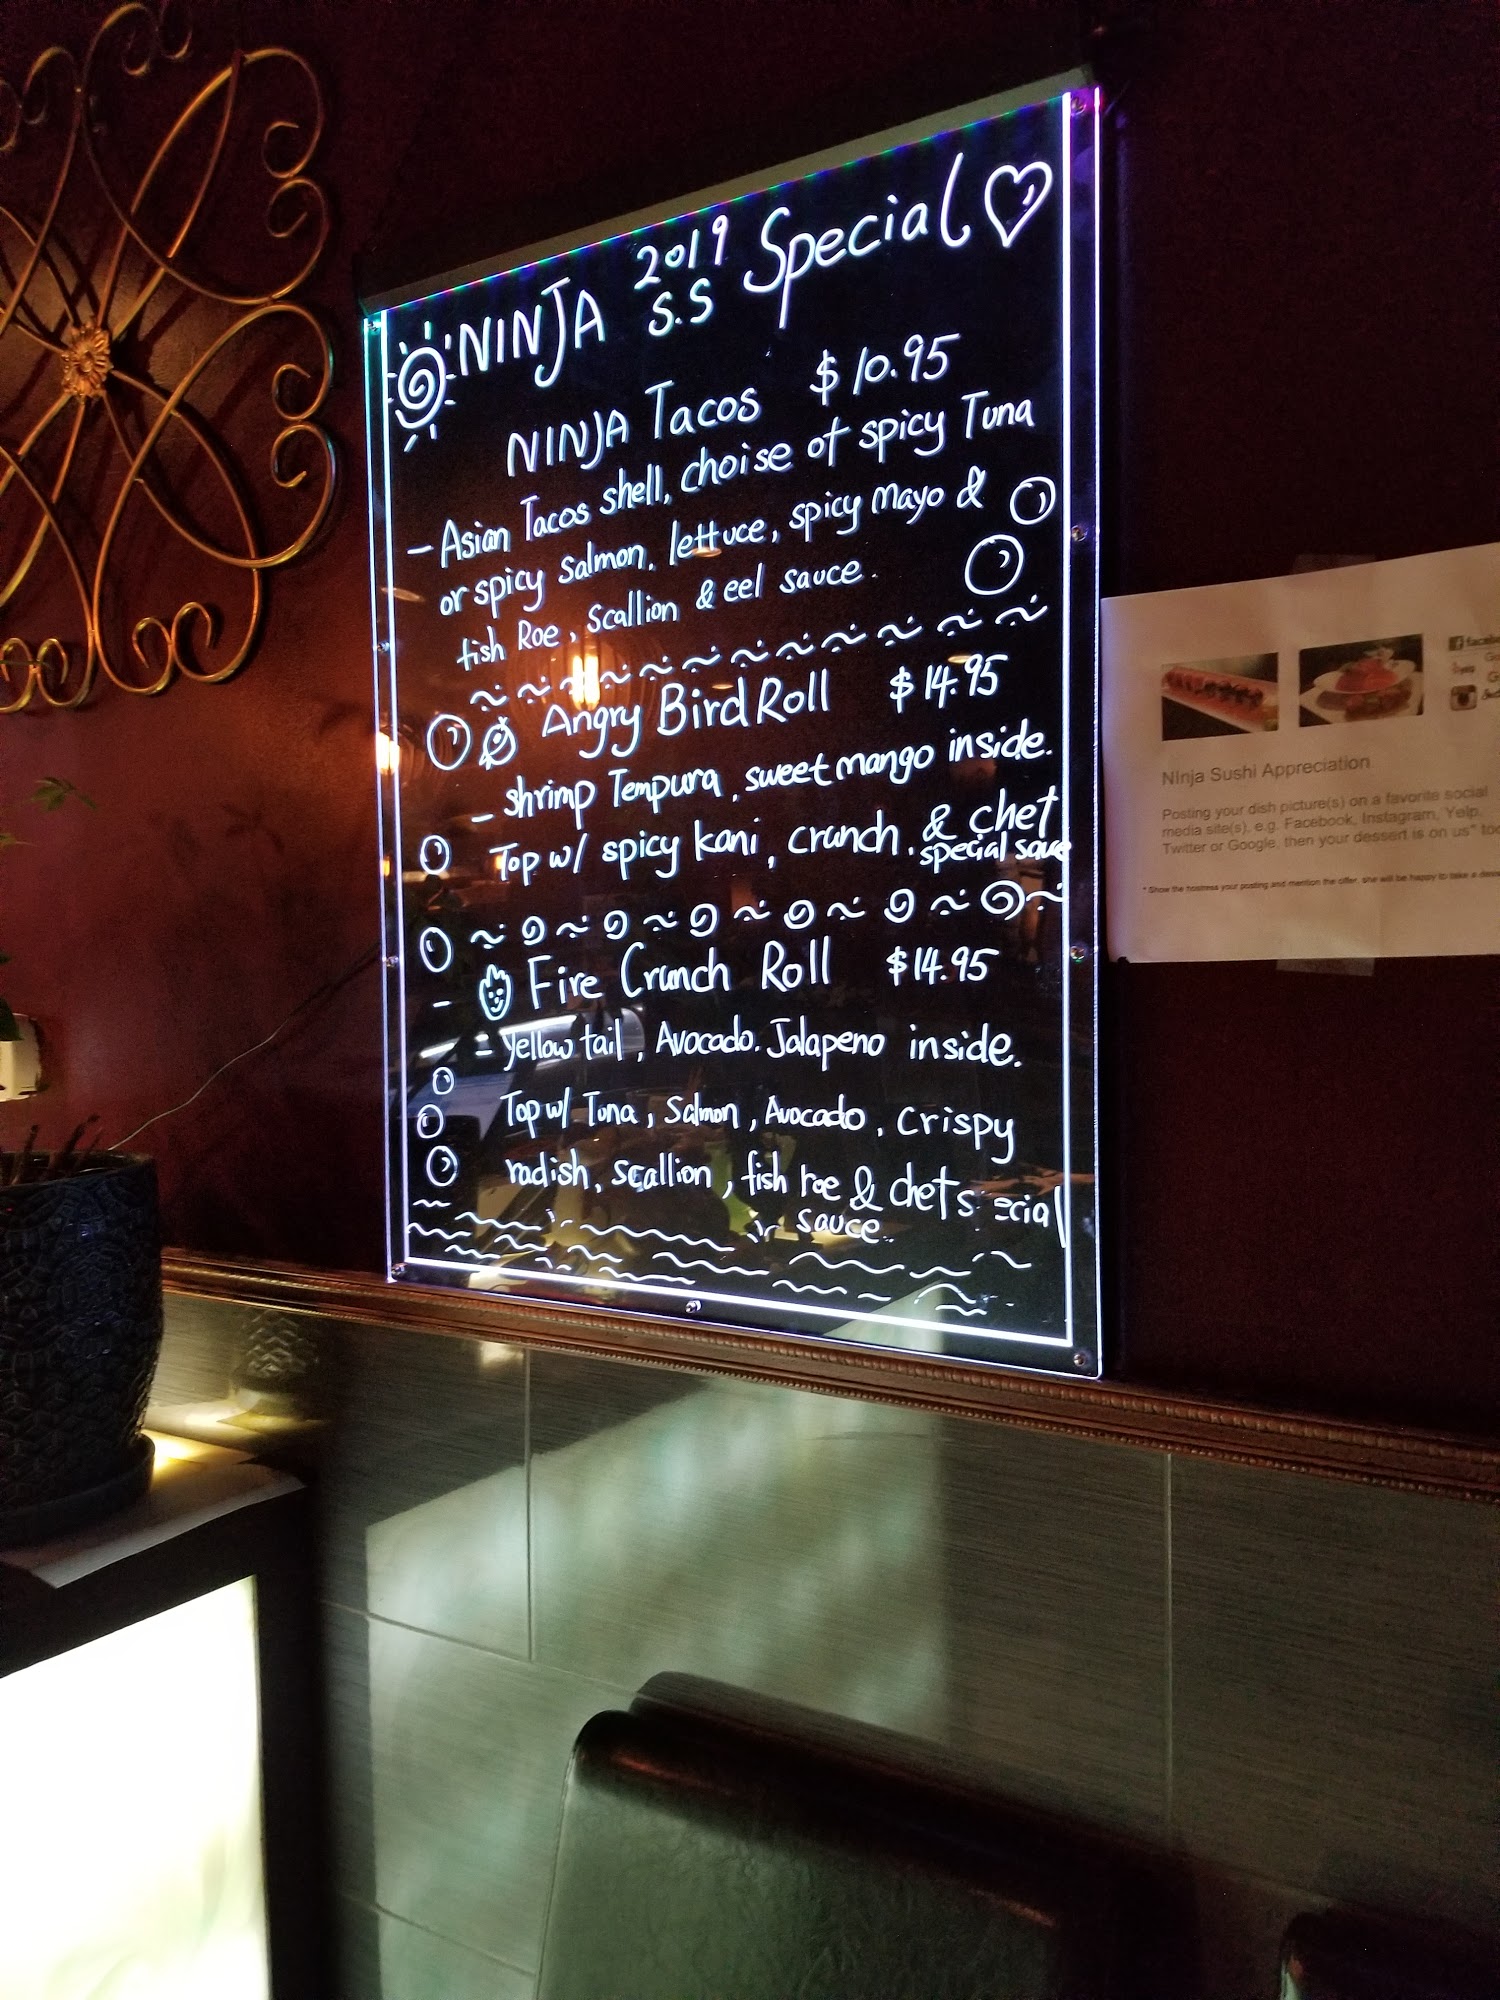 NINJA 2019 S.S Special
NINJA Tacos $10.95
- Asian Tacos shell, choise of spicy Tuna
or spicy salmon, lettuce, spicy mayo &
fish Roe, Scallion & eel sauce.
Angry Bird Roll $14.95
- shrimp Tempura, sweet mango inside.
Top w/ spicy kani, crunch. & chef
special sauce
Fire Crunch Roll $14.95
- yellow tail, Avocado. Jalapeno inside.
Top w/ Tuna, Salmon, Avocado, crispy
radish, scallion, fish roe & chef s ecial
sauce..
NInja Sushi Appreciation
Posting your dish picture(s) on a favorite social
media site(s), e.g. Facebook, Instagram, Yelp,
Twitter or Google, then your dessert is on us*
* Show the hostress your posting and mention the offer, she will be happy to take a